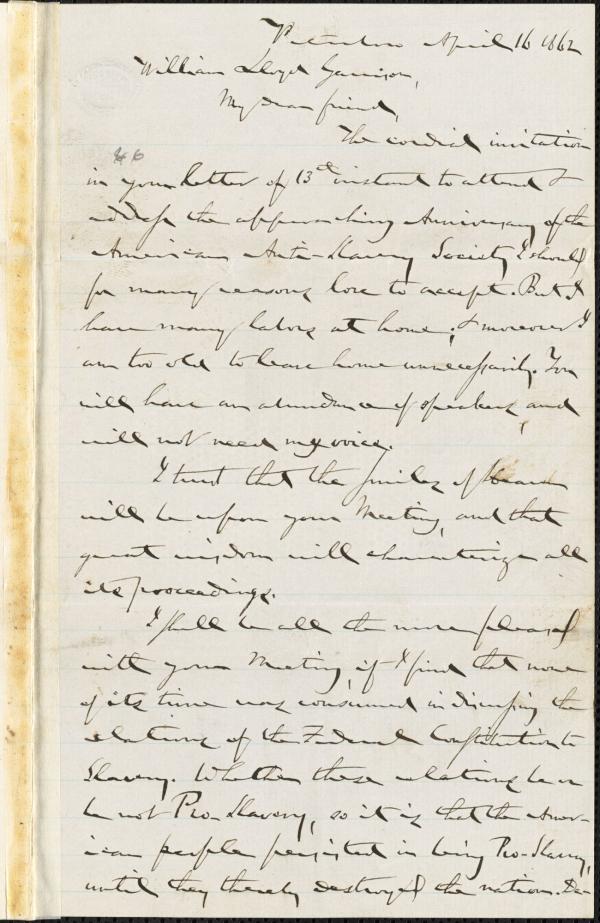 Peterboro April 16 1862
William Lloyd Garrison,
My dear friend,
The cordial invitation
46
in your letter of 13th instant to attend &
address the approaching Anniversary of the
American Anti-Slavery Society I should
for many reasons love to accept. But I
have many labors at home; & moreover I
am too old to leave home unnecessarily. You
will have an abundance of speakers, and
will not need my voice.
I trust that the smiles of heaven
will be upon your Meeting, and that
great wisdom will characterize all
its proceedings.
I shall be all the more pleased
with your Meeting, if I find that none
of its time was consumed in discussing the
relations of the Federal Constitution to
Slavery. Whether these relations be or
be not Pro-Slavery, so it is that the Amer-
ican people persisted in being Pro-Slavery,
until they thereby destroyed the nation. De-